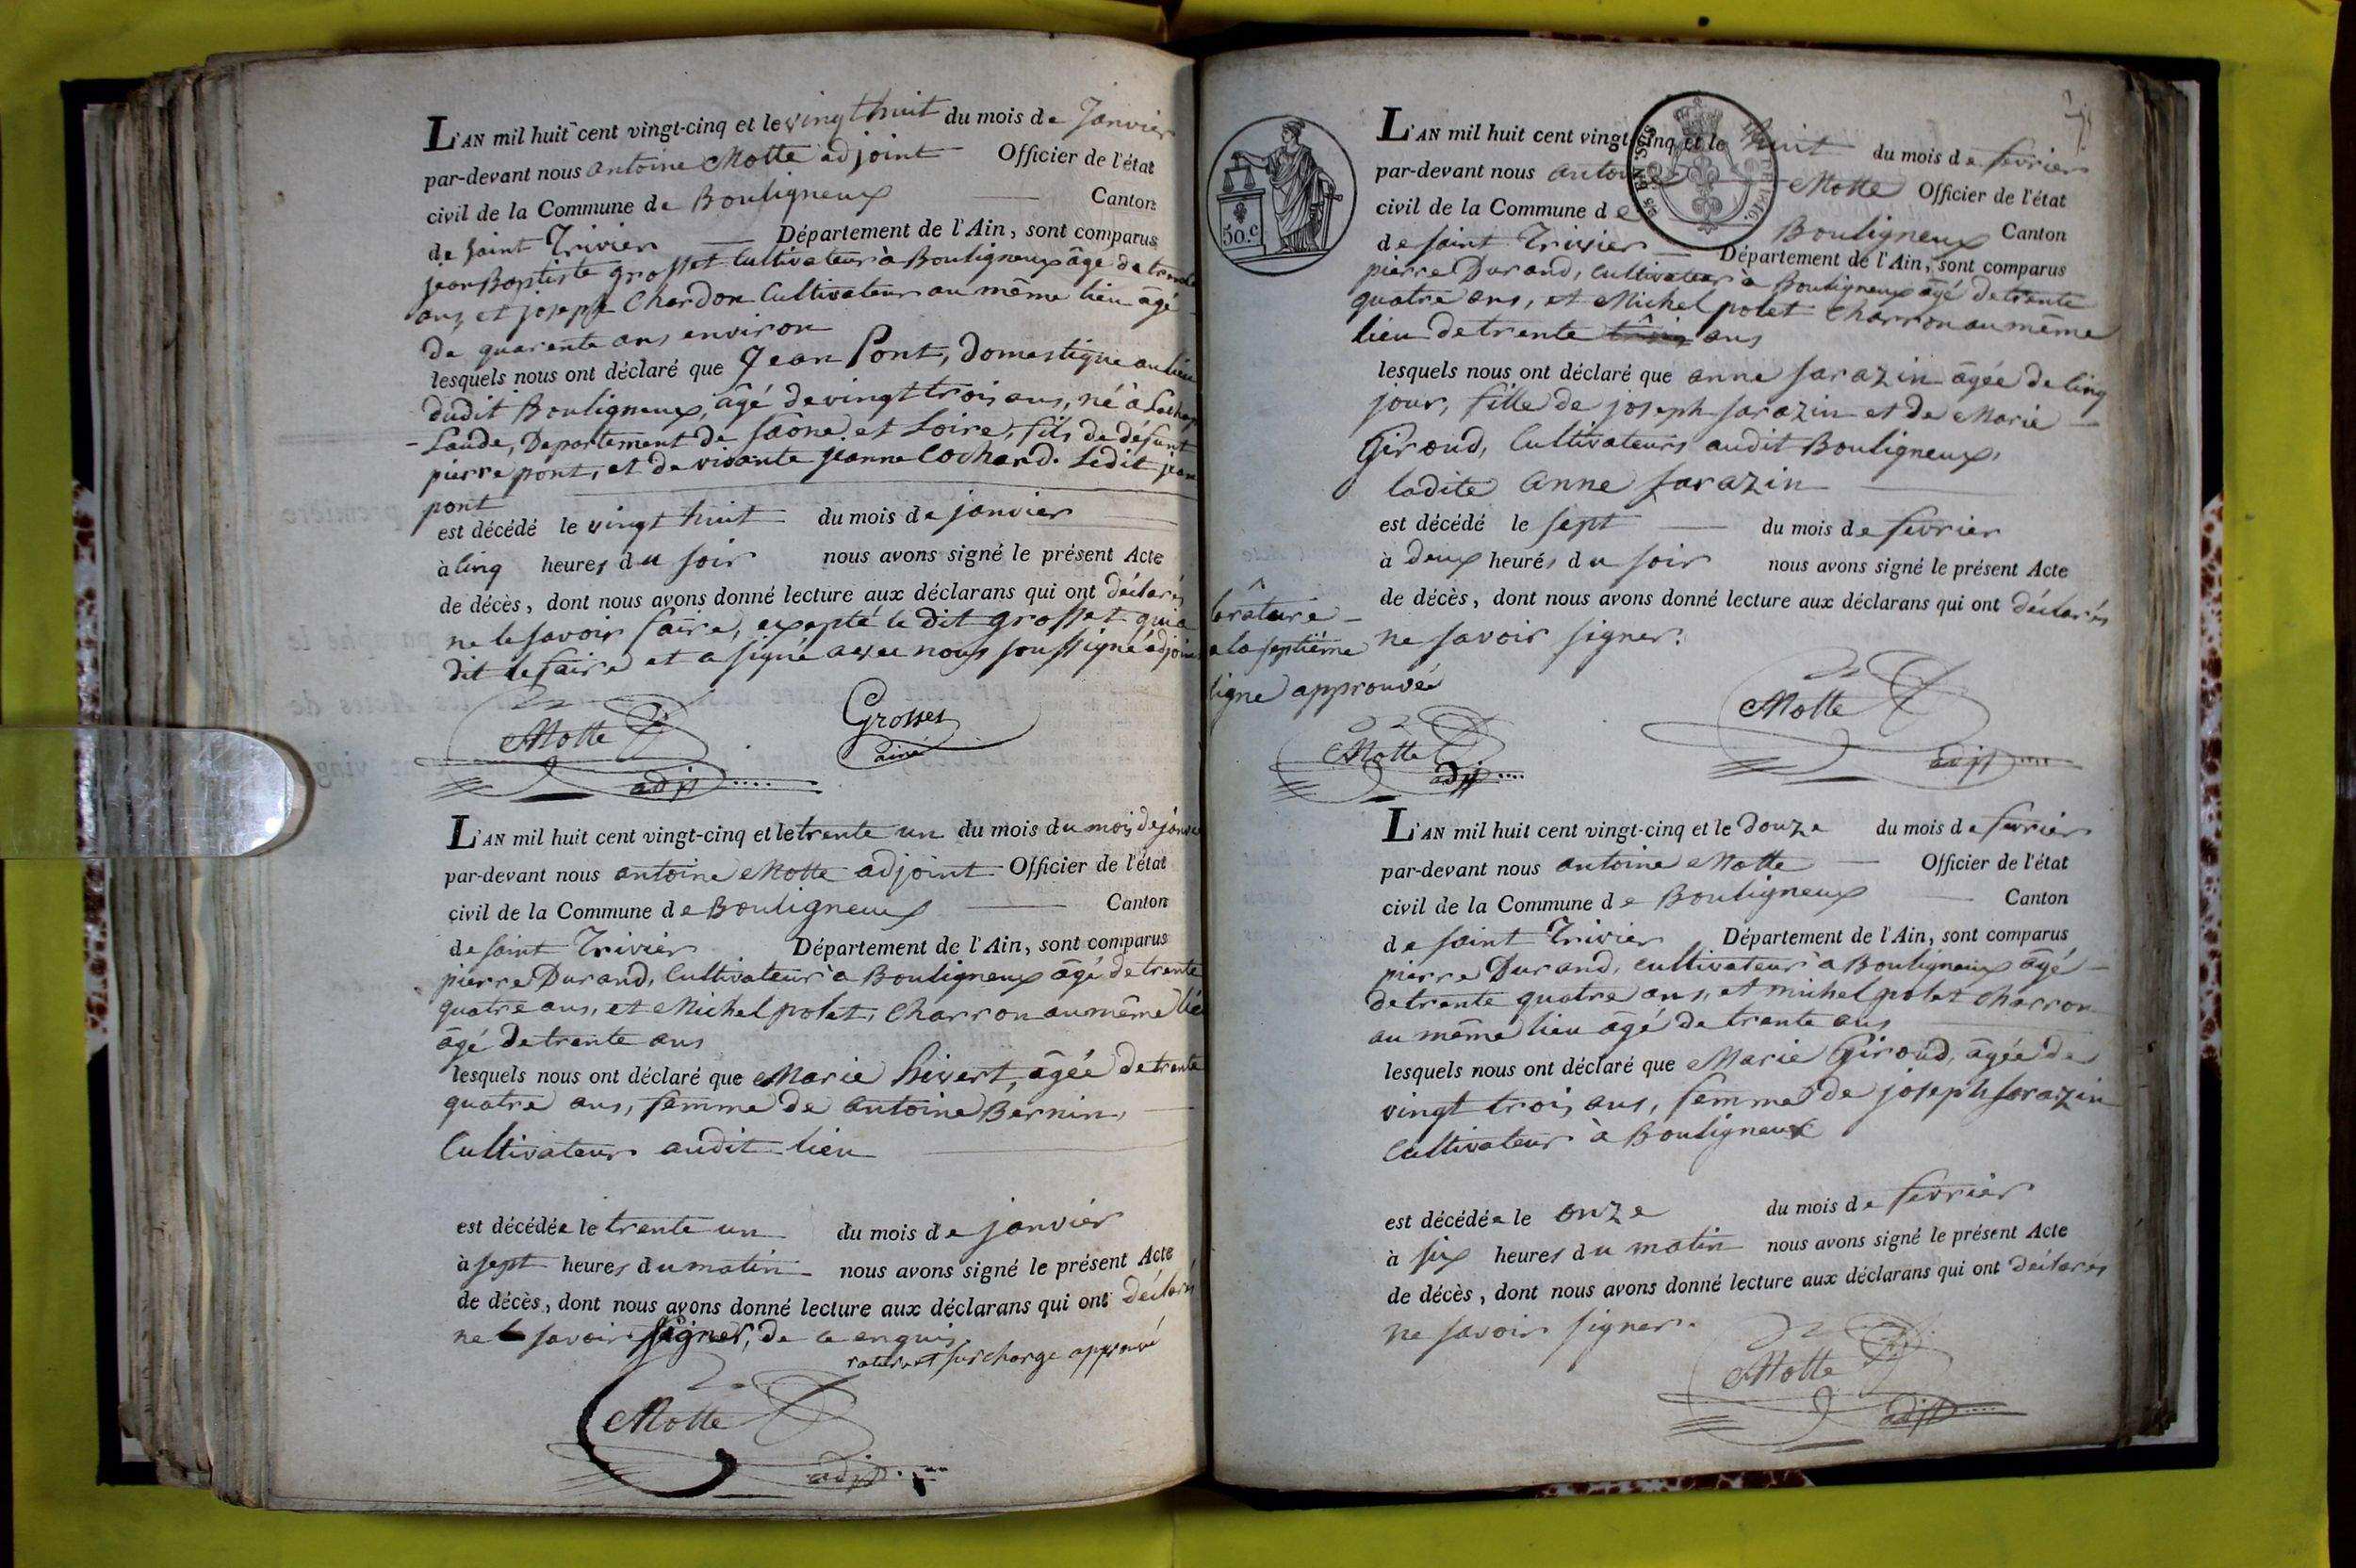 L'AN mil huit cent vingt-cinq et le vingt huit du mois de Janvier
par-devant nous antoine Motte adjoint Officier de l'état
civil de la Commune de Bouligneux Canton
de saint Trivier Département de l'Ain, sont comparus
jean Baptiste grosset Cultivateur à Bouligneux âgé de trente
ans, et joseph Chardon Cultivateur au même lieu âgé
de quarente ans environ
lesquels nous ont déclaré que Jean Pont, domestique au lieu
dudit Bouligneux, âgé de vingt trois ans, né à
-Laude, Departement de saône et Loire, fils de défunt
pierre pont, et de vivante jeanne Cochard. Ledit jean
pont
est décédé le vingt huit du mois de janvier
à cinq heures du soir nous avons signé le présent Acte
de décès, dont nous avons donné lecture aux déclarans qui ont déclarés
ne le savoir faire, exepté le dit grosset qui a
dit le faire et a signé avec nous soussigné adjoint
Motte Grosset
adjt ainé
L'AN mil huit cent vingt-cinq et le trente un du mois du mois de janvier
par-devant nous antoine Motte adjoint Officier de l'état
civil de la Commune de Bouligneux Canton
de saint Trivier Département de l'Ain, sont comparus
pierre Durand, Cultivateur à Bouligneux âgé de trente
quatre ans, et Michel polet, Charron au même lieu
âgé de trente ans
lesquels nous ont déclaré que Marie hivert, âgée de trente
quatre ans, femme de antoine Bernin,
Cultivateur audit lieu
est décédée le trente un du mois de janvier
à sept heures du matin nous avons signé le présent Acte
de décès, dont nous avons donné lecture aux déclarans qui ont déclarés
ne savoir signer, de ce enquis.
rature et surcharge approuvé
Motte
adjt
50.c
L'AN mil huit cent vingt-cinq et le huit du mois de fevrier
par-devant nous antoine Motte Officier de l'état
civil de la Commune de Bouligneux Canton
de saint Trivier Département de l'Ain, sont comparus
pierre Durand, Cultivateur à Bouligneux âgé de trente
quatre ans, et Michel polet Charron au même
lieu de trente trois ans
lesquels nous ont déclaré que anne sarazin âgée de cinq
jour, fille de joseph sarazin et de Marie
Giroud, Cultivateurs audit Bouligneux,
ladite anne sarazin
est décédé le sept du mois de fevrier
à deux heures du soir nous avons signé le présent Acte
de décès, dont nous avons donné lecture aux déclarans qui ont déclarés
ne savoir signer.
Motte
adjt
lerature
a la septième
ligne approuvée
Motte
adjt
L'AN mil huit cent vingt-cinq et le douze du mois de fevrier
par-devant nous antoine Motte Officier de l'état
civil de la Commune de Bouligneux Canton
de saint Trivier Département de l'Ain, sont comparus
pierre Durand, cultivateur à Bouligneux âgé
de trente quatre ans, et michel polet charron
au même lieu âgé de trente ans
lesquels nous ont déclaré que Marie Giroud, âgée de
vingt trois ans, femme de joseph sarazin
Cultivateur à Bouligneux
est décédée le onze du mois de fevrier
à six heures du matin nous avons signé le présent Acte
de décès, dont nous avons donné lecture aux déclarans qui ont déclarés
ne savoir signer.
Motte
adjt